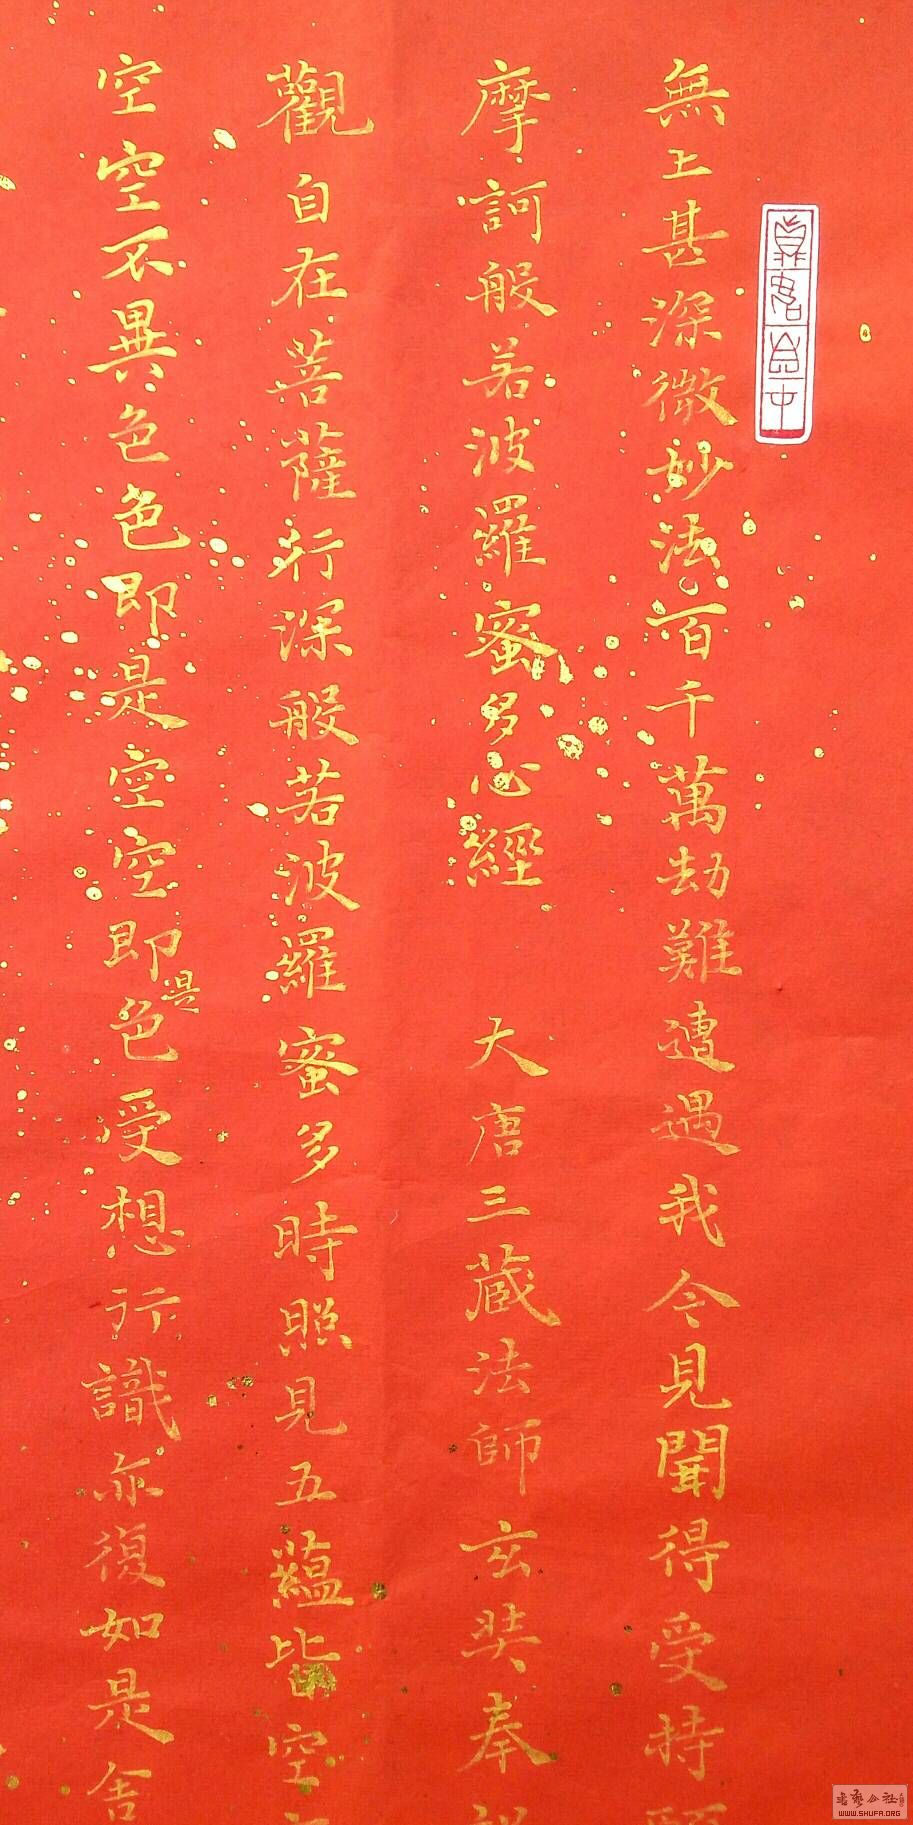 無上甚深微妙法百千萬劫難遭遇我今見聞得受持願
摩訶般若波羅蜜多心經 大唐三藏法師玄奘奉
觀自在菩薩行深般若波羅蜜多時照見五蘊皆空
空空不異色色即是空空即是色受想行識亦復如是舍
WWW.SHUFA.ORG